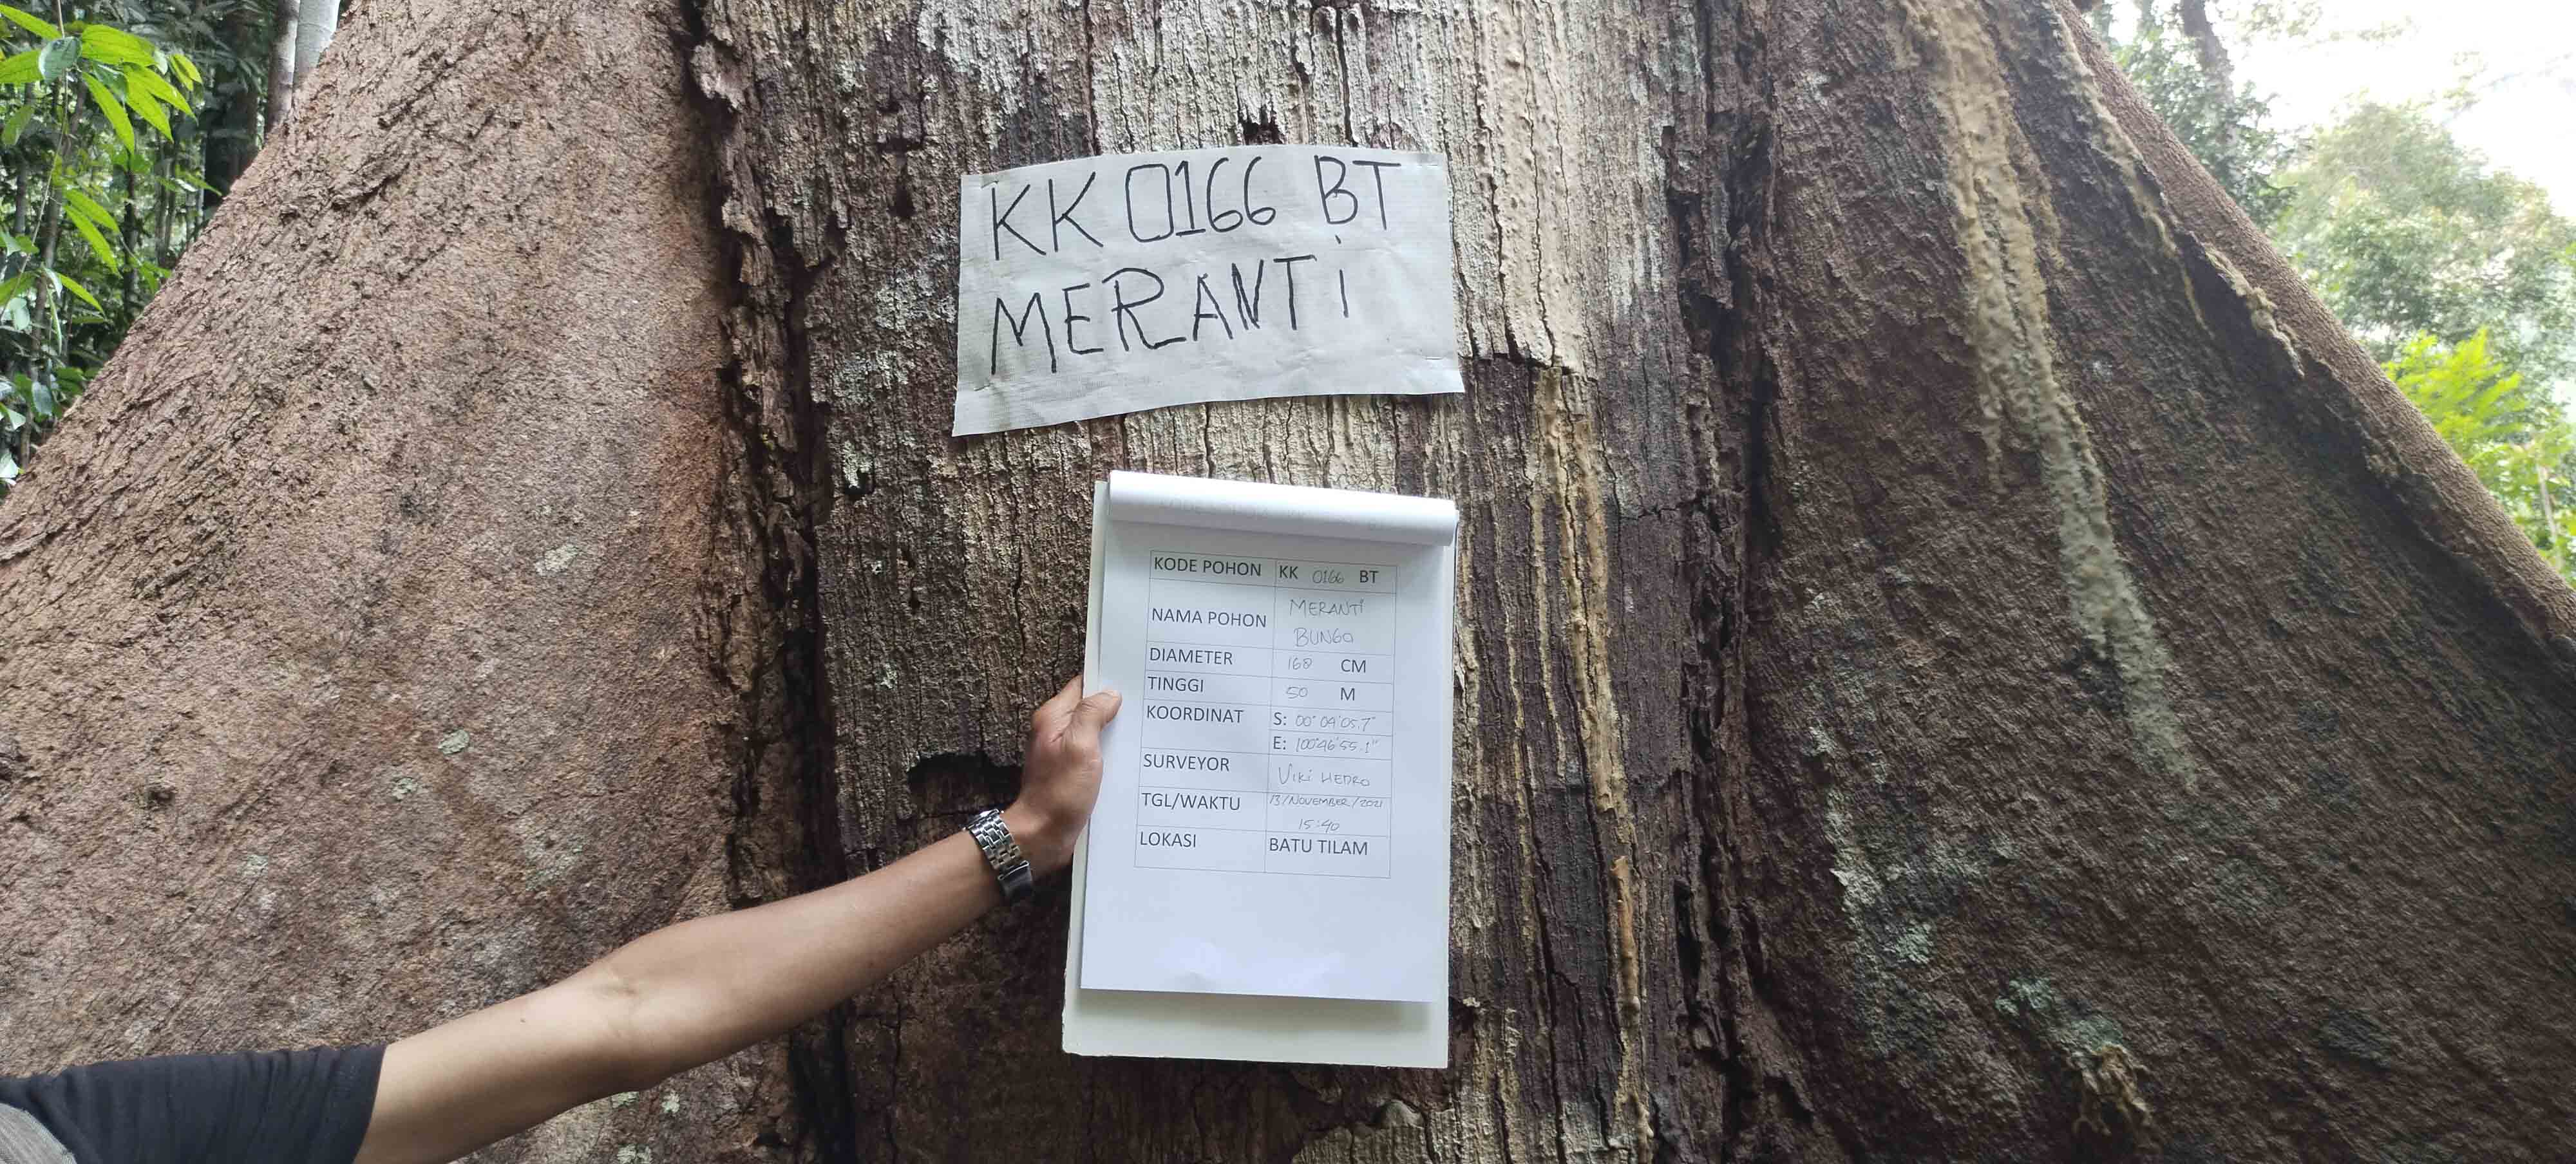 KK 0166 BT
MERANTi
KODE POHON KK 0166 BT
NAMA POHON MERANTi BUNGO
DIAMETER 168 CM
TINGGI 50 M
KOORDINAT S: 00°04'05.7"
E: 100°46'55.1"
SURVEYOR ViKi HEDRO
TGL/WAKTU 13/NOVEMBER/2021
15:40
LOKASI BATU TILAM